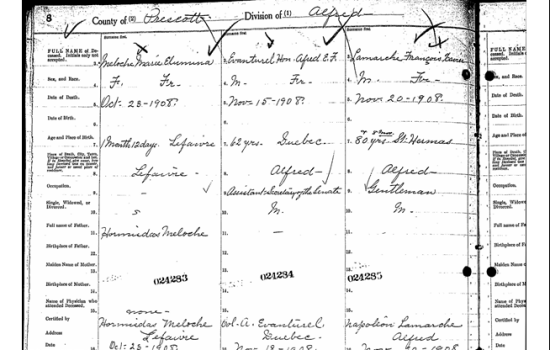 8 County of (2) Prescott Division of (1) Alfred
FULL NAME of Deceased. Initials only not accepted.
Meloche Marie Evanturel Hon. Alfred E.F. Lamarche François
Sex, and Race.
F. Fr. M. Fr- M. Fr-
Date of Death.
Oct- 23-1908. Nov. 15-1908. Nov. 20-1908.
Date of Birth.
Age and Place of Birth.
1 Month 12 days. Lefaivre 62 yrs. Quebec 80 yrs St. Hermas
Lefaivre- Alfred- Alfred-
Occupation.
- Assistant Secretary of the Senate Gentleman
Single, Widowed, or Divorced.
s M. M.
Full name of Father.
Hormidas Meloche - -
Birthplace of Father.
Maiden Name of Mother.
024283 024284 024285
Birthplace of Mother.
Name of Physician who attended Deceased.
none-
Certified by
Hormidas Meloche Col-A. Evanturel Napoléon Lamarche
Address
Lefaivre Quebec- Alfred
Date
Oct-23-1908. -1908. -1908